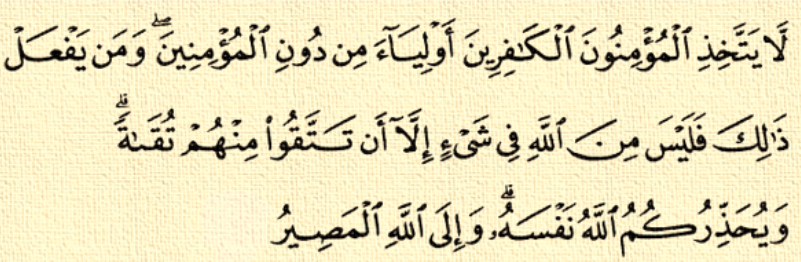 لَّا يَتَّخِذِ ٱلْمُؤْمِنُونَ ٱلْكَـٰفِرِينَ أَوْلِيَآءَ مِن دُونِ ٱلْمُؤْمِنِينَ ۖ وَمَن يَفْعَلْ
ذَٰلِكَ فَلَيْسَ مِنَ ٱللَّهِ فِى شَىْءٍ إِلَّآ أَن تَتَّقُوا۟ مِنْهُمْ تُقَىٰةً ۗ
وَيُحَذِّرُكُمُ ٱللَّهُ نَفْسَهُۥ ۗ وَإِلَى ٱللَّهِ ٱلْمَصِيرُ